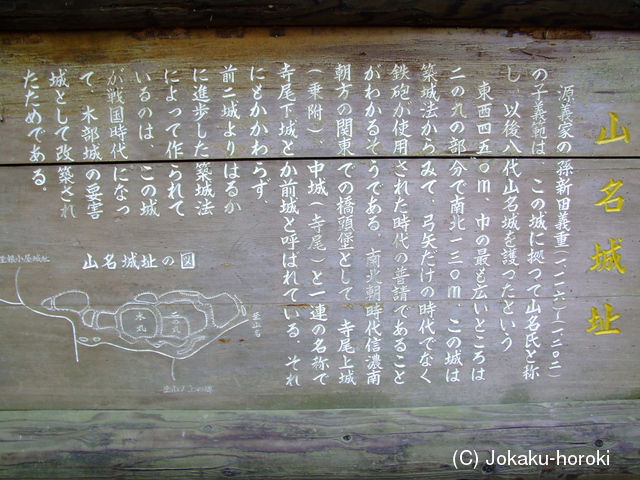 山名城址
源義家の孫新田義重(一一三六)-(一二〇二)
の子義範は、この城に拠つて山名氏と称
し、以後八代山名城を護ったという
東西四五〇m、巾の最も広いところは
二の丸の部分で南北一三〇m、この城は
築城法からみて、弓矢だけの時代でなく
鉄砲が使用された時代の普請であること
がわかるそうである。南北朝時代信濃南
朝方の関東での橋頭堡として、寺尾上城
(乗附)、中城(寺尾)と一連の名称で
寺尾下城とか前城と呼ばれている。それ
にもかかわらず、
前二城よりはるか
に進歩した築城法
によって作られて
いるのは、この城
が戦国時代になっ
て、木部城の要害
城として改築され
たためである。
山名城址の図
至根小屋城址
本丸
二ノ丸
至山名
(C) Jokaku-horoki